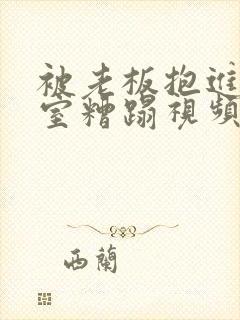 被老板抱进
室糟蹋視頻
西蘭